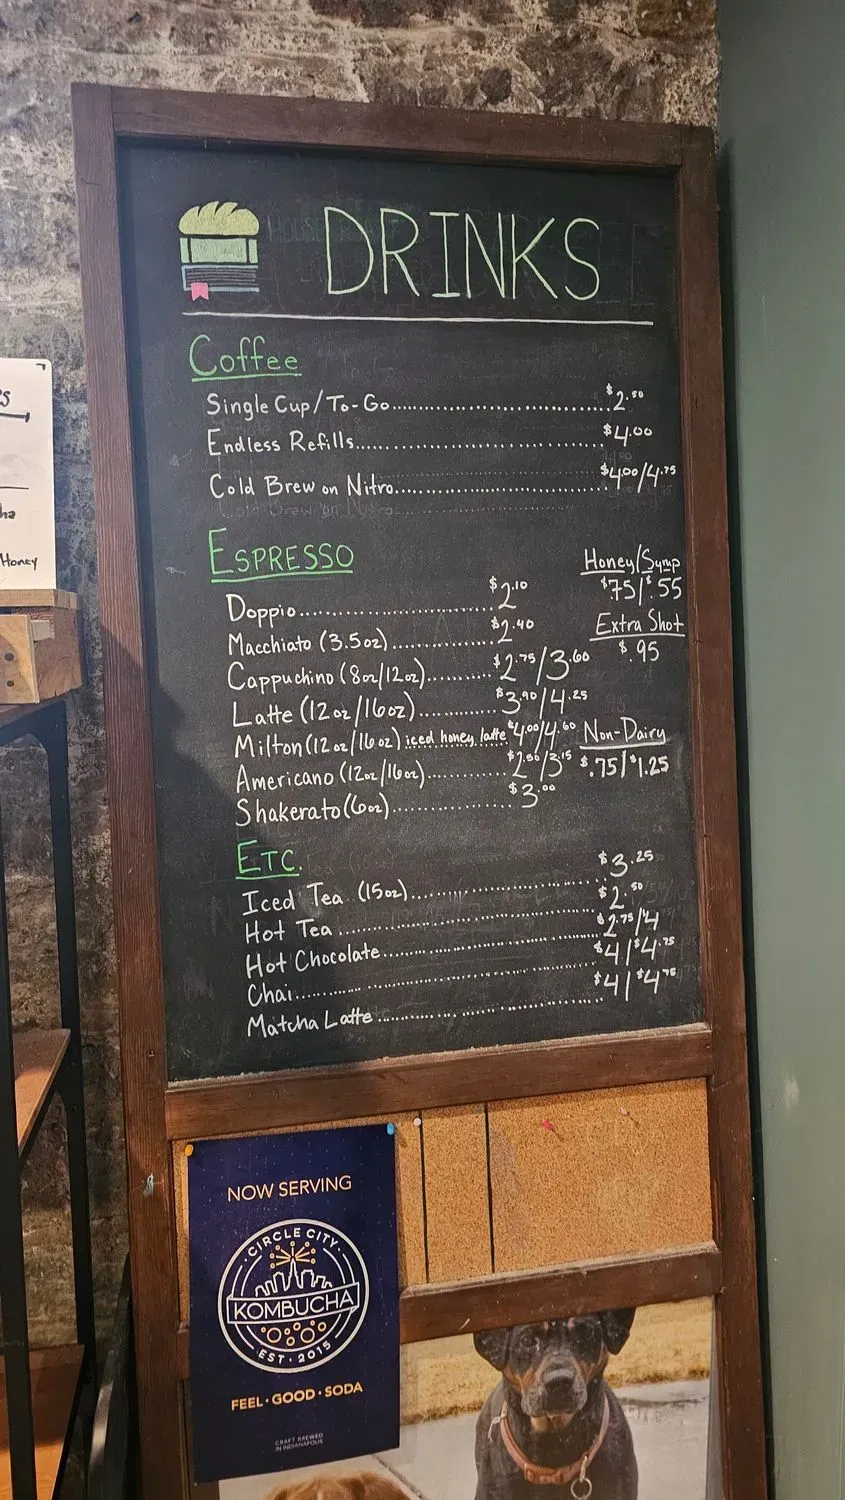 DRINKS
Coffee
Single Cup/To-Go.......... $2.50
Endless Refills.......... $4.00
Cold Brew on Nitro.......... $4.00/4.75
ESPRESSO
Doppio.......... $2.10
Macchiato (3.5oz).......... $2.40
Cappuchino (8oz/12oz).......... $2.75/3.60
Latte (12oz/16oz).......... $3.90/4.25
Milton (12oz/16oz) iced honey latte $4.00/4.60
Americano (12oz/16oz).......... $2.50/3.15
Shakerato (6oz).......... $3.00
Honey/Syrup
$.75/$.55
Extra Shot
$.95
Non-Dairy
$.75/$1.25
ETC.
Iced Tea (15oz).......... $3.25
Hot Tea.......... $2.50
Hot Chocolate.......... $2.75/4
Chai.......... $4/$4.75
Matcha Latte.......... $4/$4.75
Honey
NOW SERVING
CIRCLE CITY
KOMBUCHA
EST · 2015
FEEL · GOOD · SODA
CRAFT BREWED
IN INDIANAPOLIS